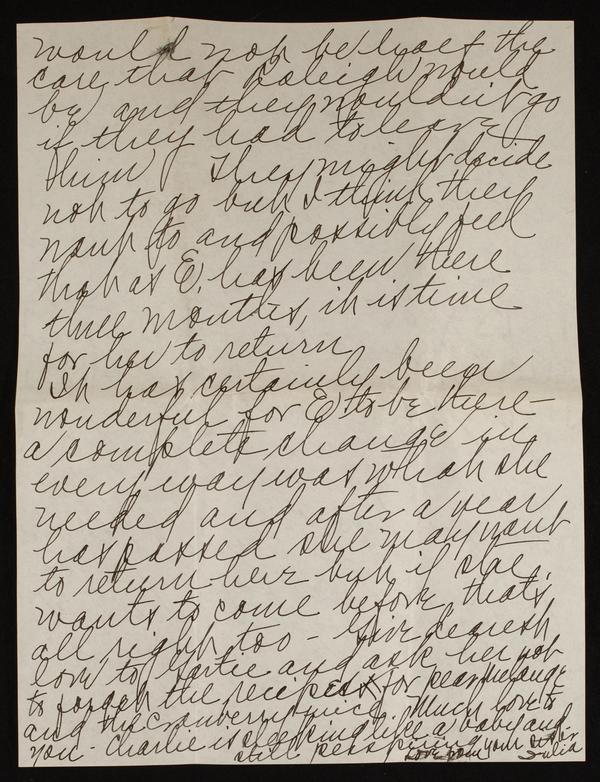 would not be half the
care that Raleigh would
be and they wouldn't go
if they had to leave
him) They might decide
not to go but I think they
want to and possibly feel
that as E. has been there
three months, it is time
for her to return
It has certainly been
wonderful for E to be there -
a complete change in
every way was what she
needed and after a year
has passed she may want
to return here but if she
wants to come before, that's
all right too - Give dearest
love to and ask her not
to forget the recipes for pear
and the cranberry juice. Much love to
you - Charlie is sleeping like a baby and
still perspiring your sister
Love from Julia